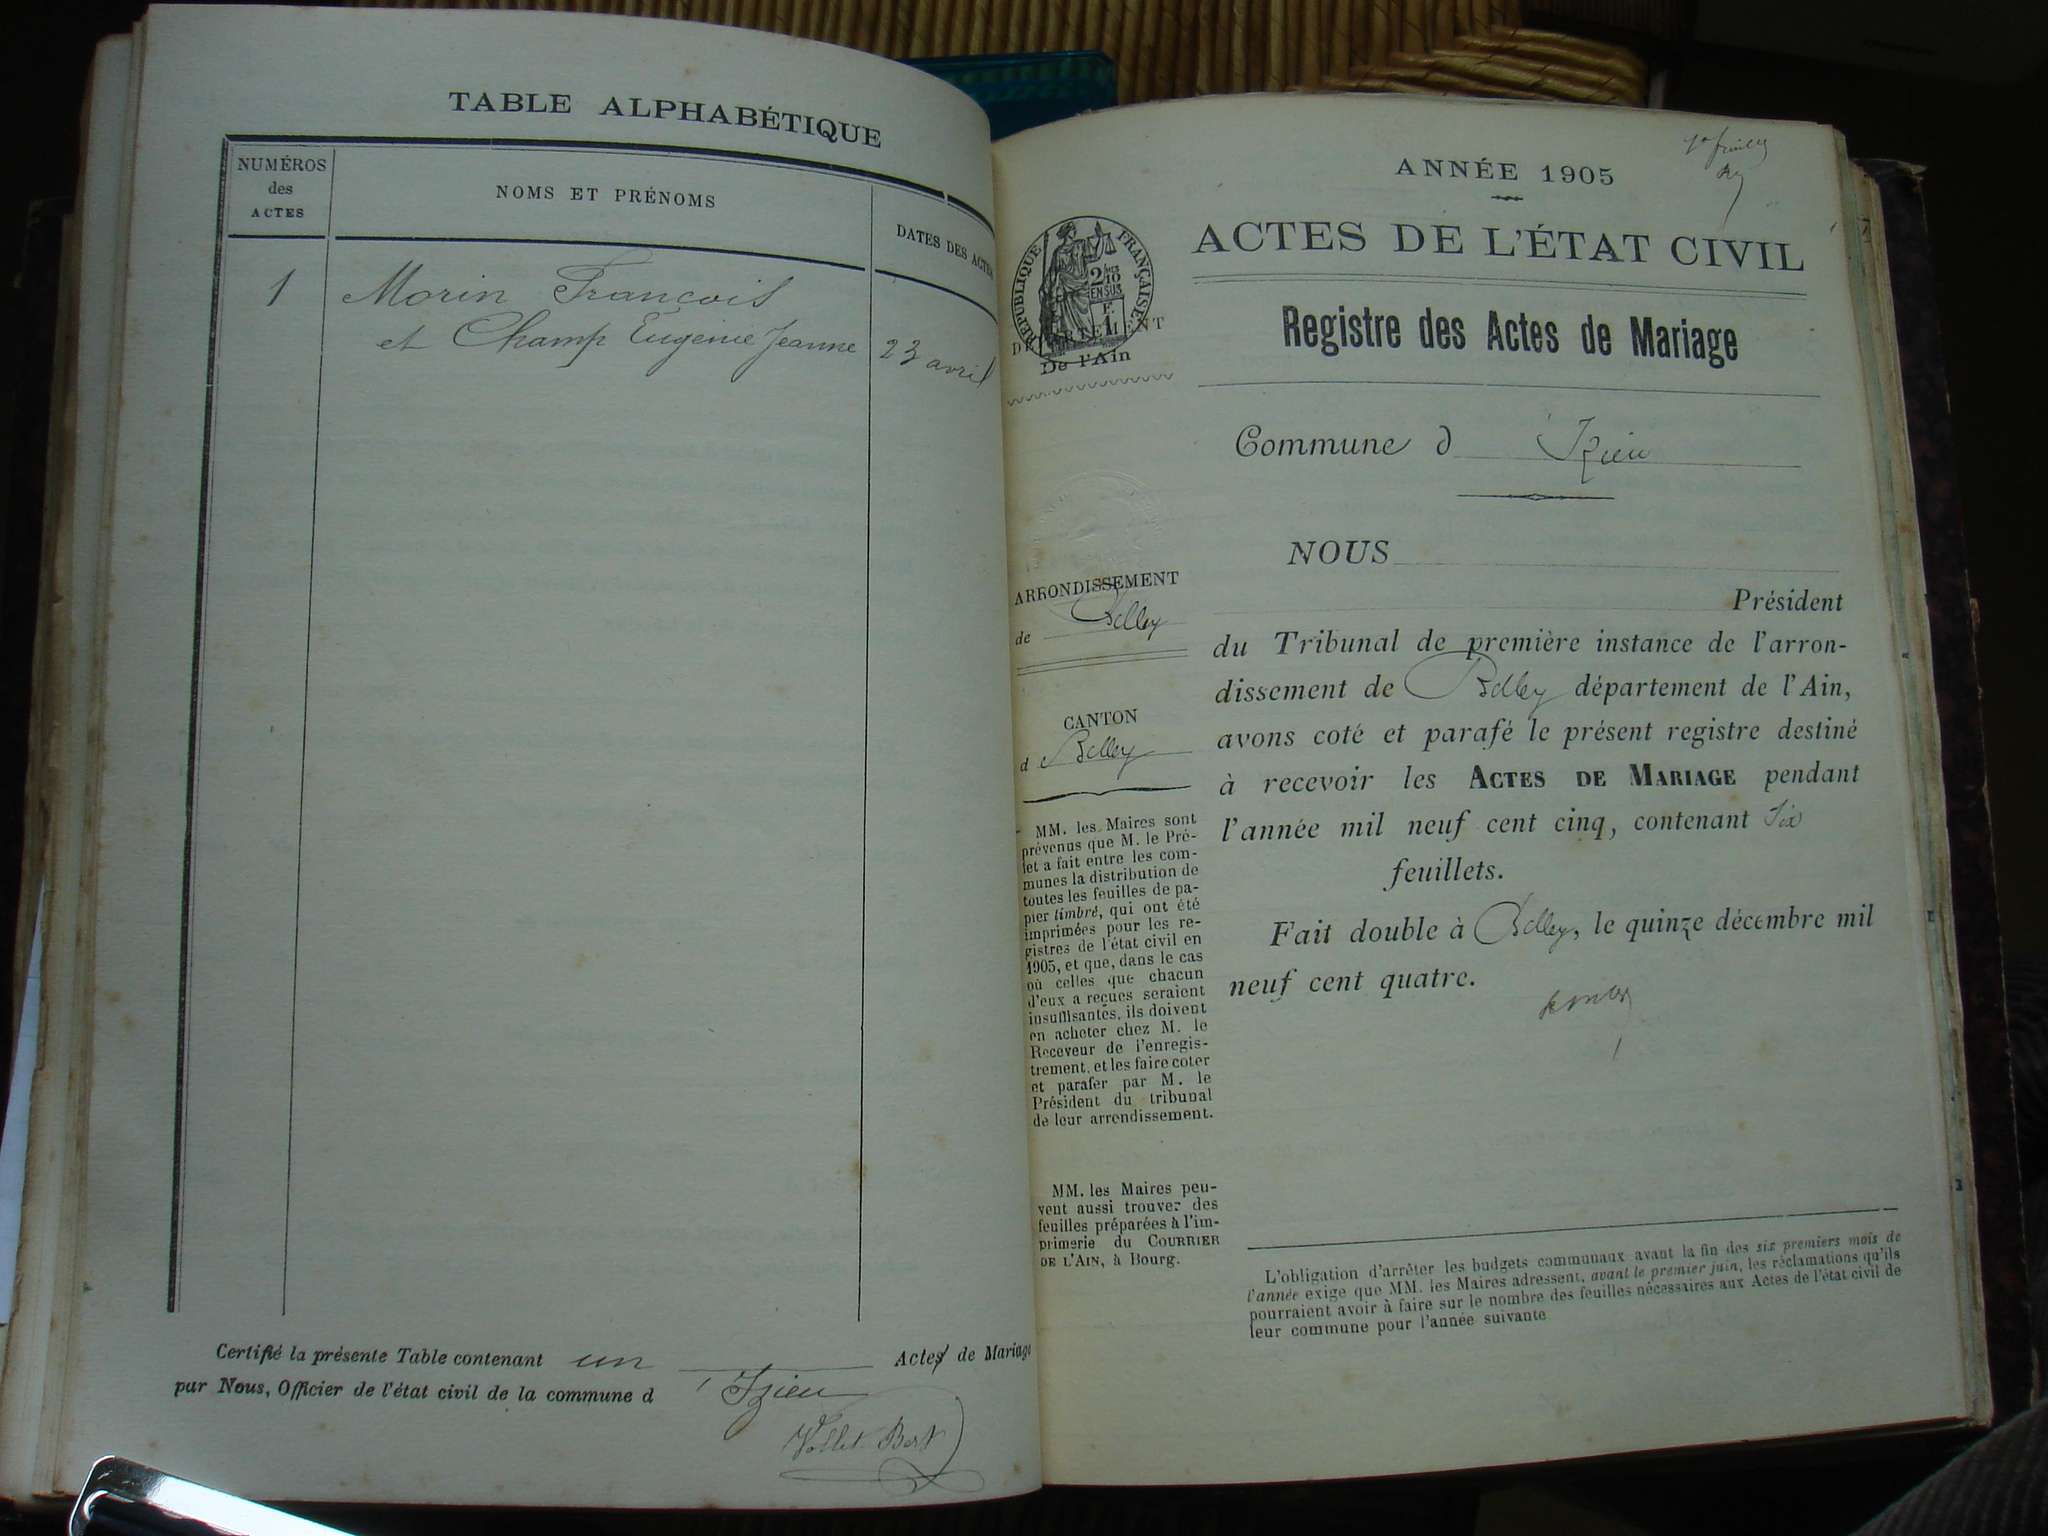 TABLE ALPHABÉTIQUE
NUMÉROS
des
ACTES
NOMS ET PRÉNOMS
DATES DES ACTES
1
Morin François
et Champ Eugénie Jeanne
23 avril
Certifié la présente Table contenant un Actes de Mariage
par Nous, Officier de l'état civil de la commune d'Izieu
Vollet Bert
1er feuillet
ANNÉE 1905
ACTES DE L'ÉTAT CIVIL
Registre des Actes de Mariage
RÉPUBLIQUE FRANÇAISE
2/10
EN SUS
F.
1
DÉPARTEMENT
De l'Ain
Commune d'Izieu
ARRONDISSEMENT
de Belley
CANTON
de Belley
MM. les Maires sont
prévenus que M. le Pré-
fet a fait entre les com-
munes la distribution de
toutes les feuilles de pa-
pier timbré, qui ont été
imprimées pour les re-
gistres de l'état civil en
1905, et que, dans le cas
où celles que chacun
d'eux a reçues seraient
insuffisantes, ils doivent
en acheter chez M. le
Receveur de l'enregis-
trement, et les faire coter
et parafer par M. le
Président du tribunal
de leur arrondissement.
MM. les Maires peu-
vent aussi trouver des
feuilles préparées à l'im-
primerie du COURRIER
DE L'AIN, à Bourg.
NOUS
Président
du Tribunal de première instance de l'arron-
dissement de Belley département de l'Ain,
avons coté et parafé le présent registre destiné
à recevoir les ACTES DE MARIAGE pendant
l'année mil neuf cent cinq, contenant Six
feuillets.
Fait double à Belley, le quinze décembre mil
neuf cent quatre.
L'obligation d'arrêter les budgets communaux avant la fin des six premiers mois de
l'année exige que MM. les Maires adressent, avant le premier juin, les réclamations qu'ils
pourraient avoir à faire sur le nombre des feuilles nécessaires aux Actes de l'état civil de
leur commune pour l'année suivante